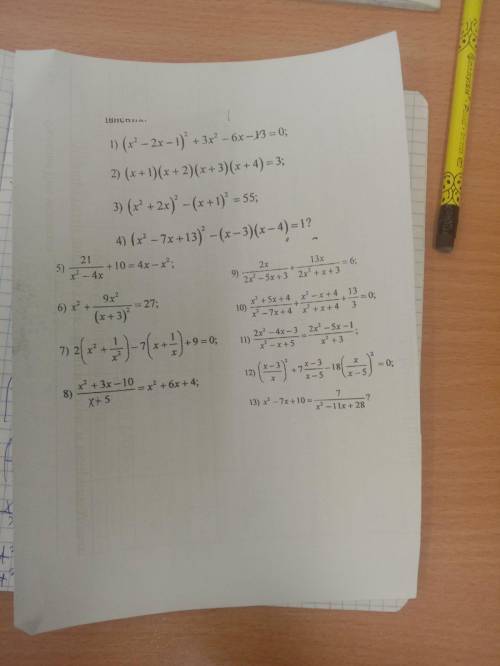 1) (x² − 2x − 1)² + 3x² − 6x − 13 = 0;
2) (x + 1)(x + 2)(x + 3)(x + 4) = 3;
3) (x² + 2x)² − (x + 1)² = 55;
4) (x² − 7x + 13)² − (x − 3)(x − 4) = 1?
5) 21/(x² − 4x) + 10 = 4x − x²;
6) x² + 9x²/(x + 3)² = 27;
7) 2(x² + 1/x²) − 7(x + 1/x) + 9 = 0;
8) (x² + 3x − 10)/(x + 5) = x² + 6x + 4;
9) 2x/(2x² − 5x + 3) + 13x/(2x² + x + 3) = 6;
10) (x² + 5x + 4)/(x² − 7x + 4) + (x² − x + 4)/(x² + x + 4) + 13/3 = 0;
11) (2x² − 4x − 3)/(x² − x + 5) = (2x² − 5x − 1)/(x² + 3);
12) ((x − 3)/x)² + 7 (x − 3)/(x − 5) − 18(x/(x − 5))² = 0;
13) x² − 7x + 10 = 7/(x² − 11x + 28)?